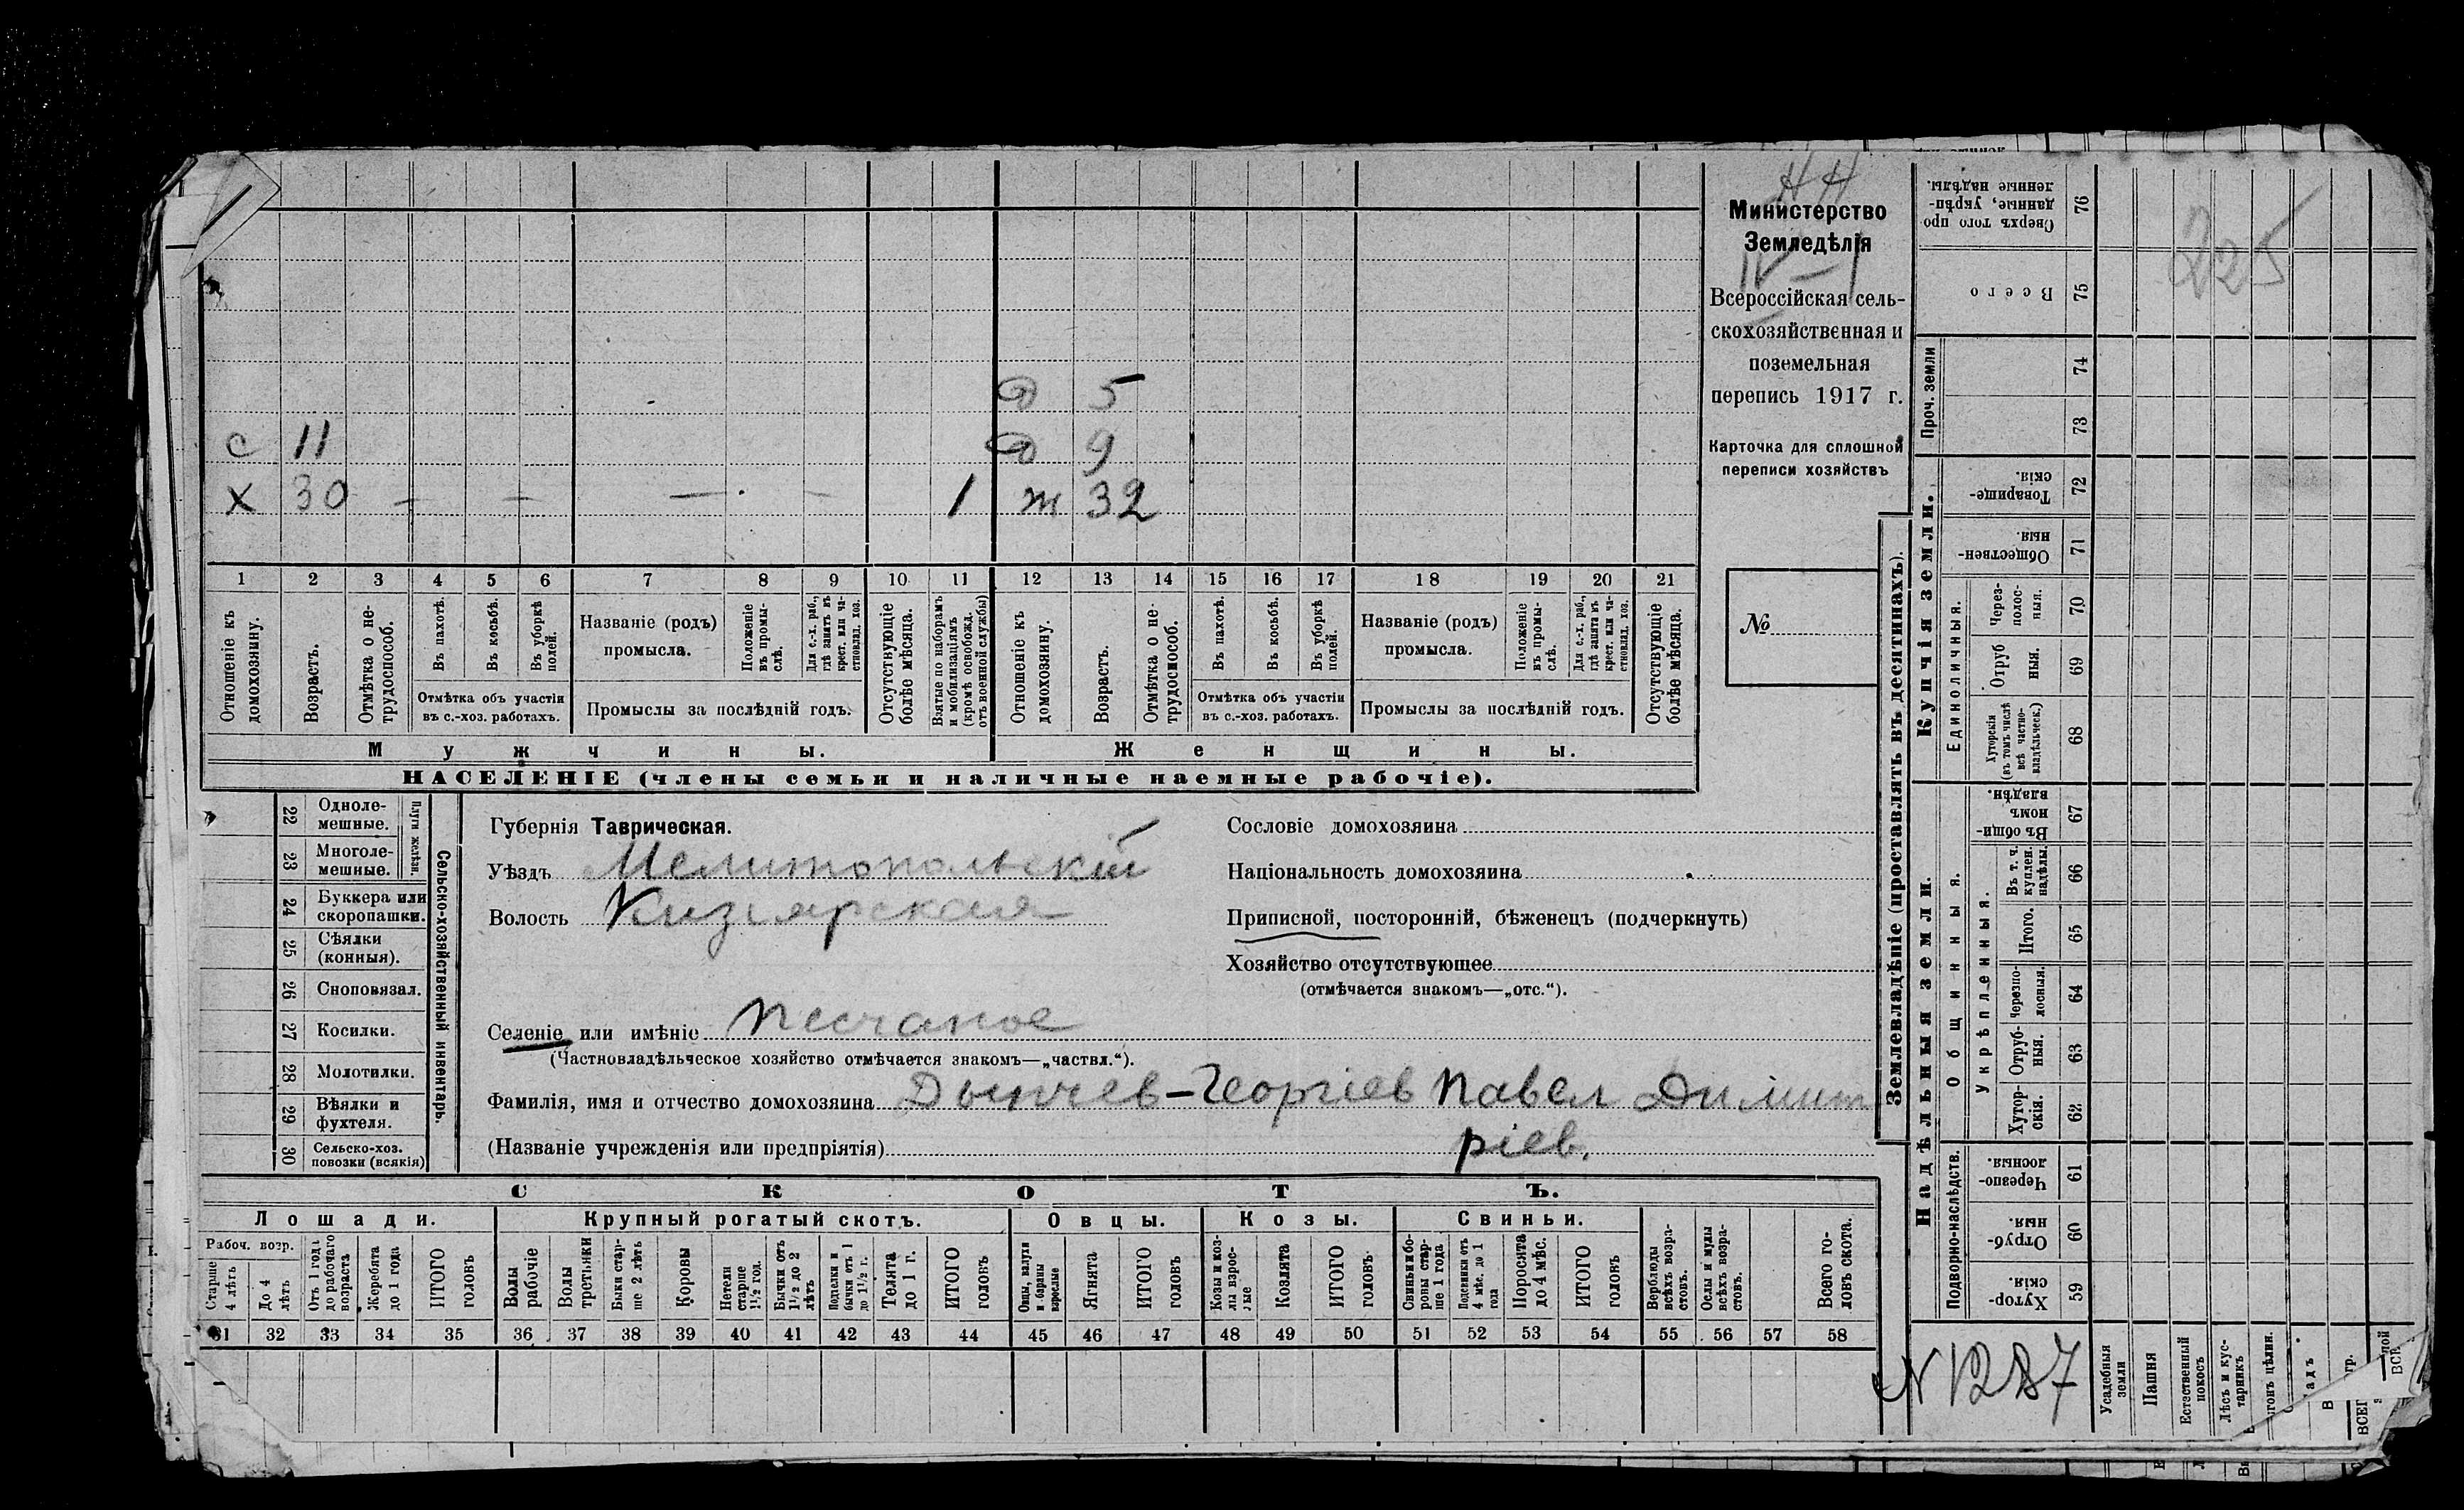 НН
Министерство
Земледѣлія
IV–1
Всероссійская сель-
скохозяйственная и
поземельная
перепись 1917 г.
Карточка для сплошной
переписи хозяйствъ
№
Д 5
С 11 Д 9
Х 30 – – – – 1 Ж 32
1 2 3 4 5 6 7 8 9 10 11 12 13 14 15 16 17 18 19 20 21
Отношеніе къ домохозяину.
Возрастъ.
Отмѣтка о не-трудоспособ.
Въ пахотѣ.
Въ косьбѣ.
Въ уборкѣ полей.
Отмѣтка объ участіи въ с.-хоз. работахъ.
Названіе (родъ) промысла.
Положеніе въ промы-слѣ.
Для с.-х. раб., гдѣ занятъ въ крест. или ча-стновлад. хоз.
Промыслы за послѣдній годъ.
Отсутствующіе болѣе мѣсяца.
Взятые по наборамъ и мобилизаціямъ (кромѣ освобожд. отъ военной службы)
Отношеніе къ домохозяину.
Возрастъ.
Отмѣтка о не-трудоспособ.
Въ пахотѣ.
Въ косьбѣ.
Въ уборкѣ полей.
Отмѣтка объ участіи въ с.-хоз. работахъ.
Названіе (родъ) промысла.
Положеніе въ промы-слѣ.
Для с.-х. раб., гдѣ занята въ крест. или ча-стновлад. хоз.
Промыслы за послѣдній годъ.
Отсутствующіе болѣе мѣсяца.
Мужчины. Женщины.
НАСЕЛЕНІЕ (члены семьи и наличные наемные рабочіе).
22 Одноле-мешные.
23 Многоле-мешные.
Плуги желѣзн.
24 Буккера или скоропашки.
25 Сѣялки (конныя).
26 Сноповязал.
27 Косилки.
28 Молотилки.
29 Вѣялки и фухтеля.
30 Сельско-хоз. повозки (всякія)
Сельско-хозяйственный инвентарь.
Губернія Таврическая.
Уѣздъ Мелитопольскій
Волость Кизіярская
Селеніе или имѣніе Песчаное
(Частновладѣльческое хозяйство отмѣчается знакомъ—„частвл.“).
Фамилія, имя и отчество домохозяина Дынчев-Георгіев Павел Димит
(Названіе учрежденія или предпріятія) ріев.
Сословіе домохозяина
Національность домохозяина
Приписной, посторонній, бѣженецъ (подчеркнуть)
Хозяйство отсутствующее
(отмѣчается знакомъ—„отс.“).
СКОТЪ.
Лошади. Крупный рогатый скотъ. Овцы. Козы. Свиньи.
Рабоч. возр.
Старше 4 лѣтъ
До 4 лѣтъ
Отъ 1 года до рабочаго возраста
Жеребята до 1 года
ИТОГО головъ
Волы рабочіе
Волы третьяки
Быки стар-ше 2 лѣтъ
Коровы
Нетели старше 1½ год.
Бычки отъ 1½ до 2 лѣтъ
Подтелки и бычки отъ 1 до 1½ г.
Телята до 1 г.
ИТОГО головъ
Овцы, валухи и бараны взрослые
Ягнята
ИТОГО головъ
Козы и коз-лы взрос-лые
Козлята
ИТОГО головъ
Свиньи и бо-ровы стар-ше 1 года
Подсвинки отъ 4 мѣс. до 1 года
Поросята до 4 мѣс.
ИТОГО головъ
Верблюды всѣхъ возра-стовъ.
Ослы и мулы всѣхъ возра-стовъ.
Всего го-ловъ скота.
31 32 33 34 35 36 37 38 39 40 41 42 43 44 45 46 47 48 49 50 51 52 53 54 55 56 57 58
Землевладѣніе (проставлять въ десятинахъ).
Купчія земли.
Надѣльныя земли.
225
Сверхъ того про данные, укрѣп-ленные надѣлы. 76
Всего 75
Проч. земли
74
73
Товарище-скія 72
Обществен-ныя. 71
Единоличныя.
Через-полос-ныя. 70
Отруб ныя. 69
Хуторскія (въ томъ числѣ всѣ частно-владѣльческ.) 68
Общинныя.
Въ общи-номъ владѣн. 67
Укрѣпленныя.
Въ т. ч. куплен. надѣлы. 66
Итого. 65
Черезпо-лосныя. 64
Отруб-ныя. 63
Хутор-скія. 62
Подворно-наслѣдств.
Черезпо-лосныя. 61
Отруб-ныя. 60
Хутор-скія. 59
N 1287
Усадебныя земли
Пашня
Естественный покосъ
Лѣсъ и кус-тарникъ